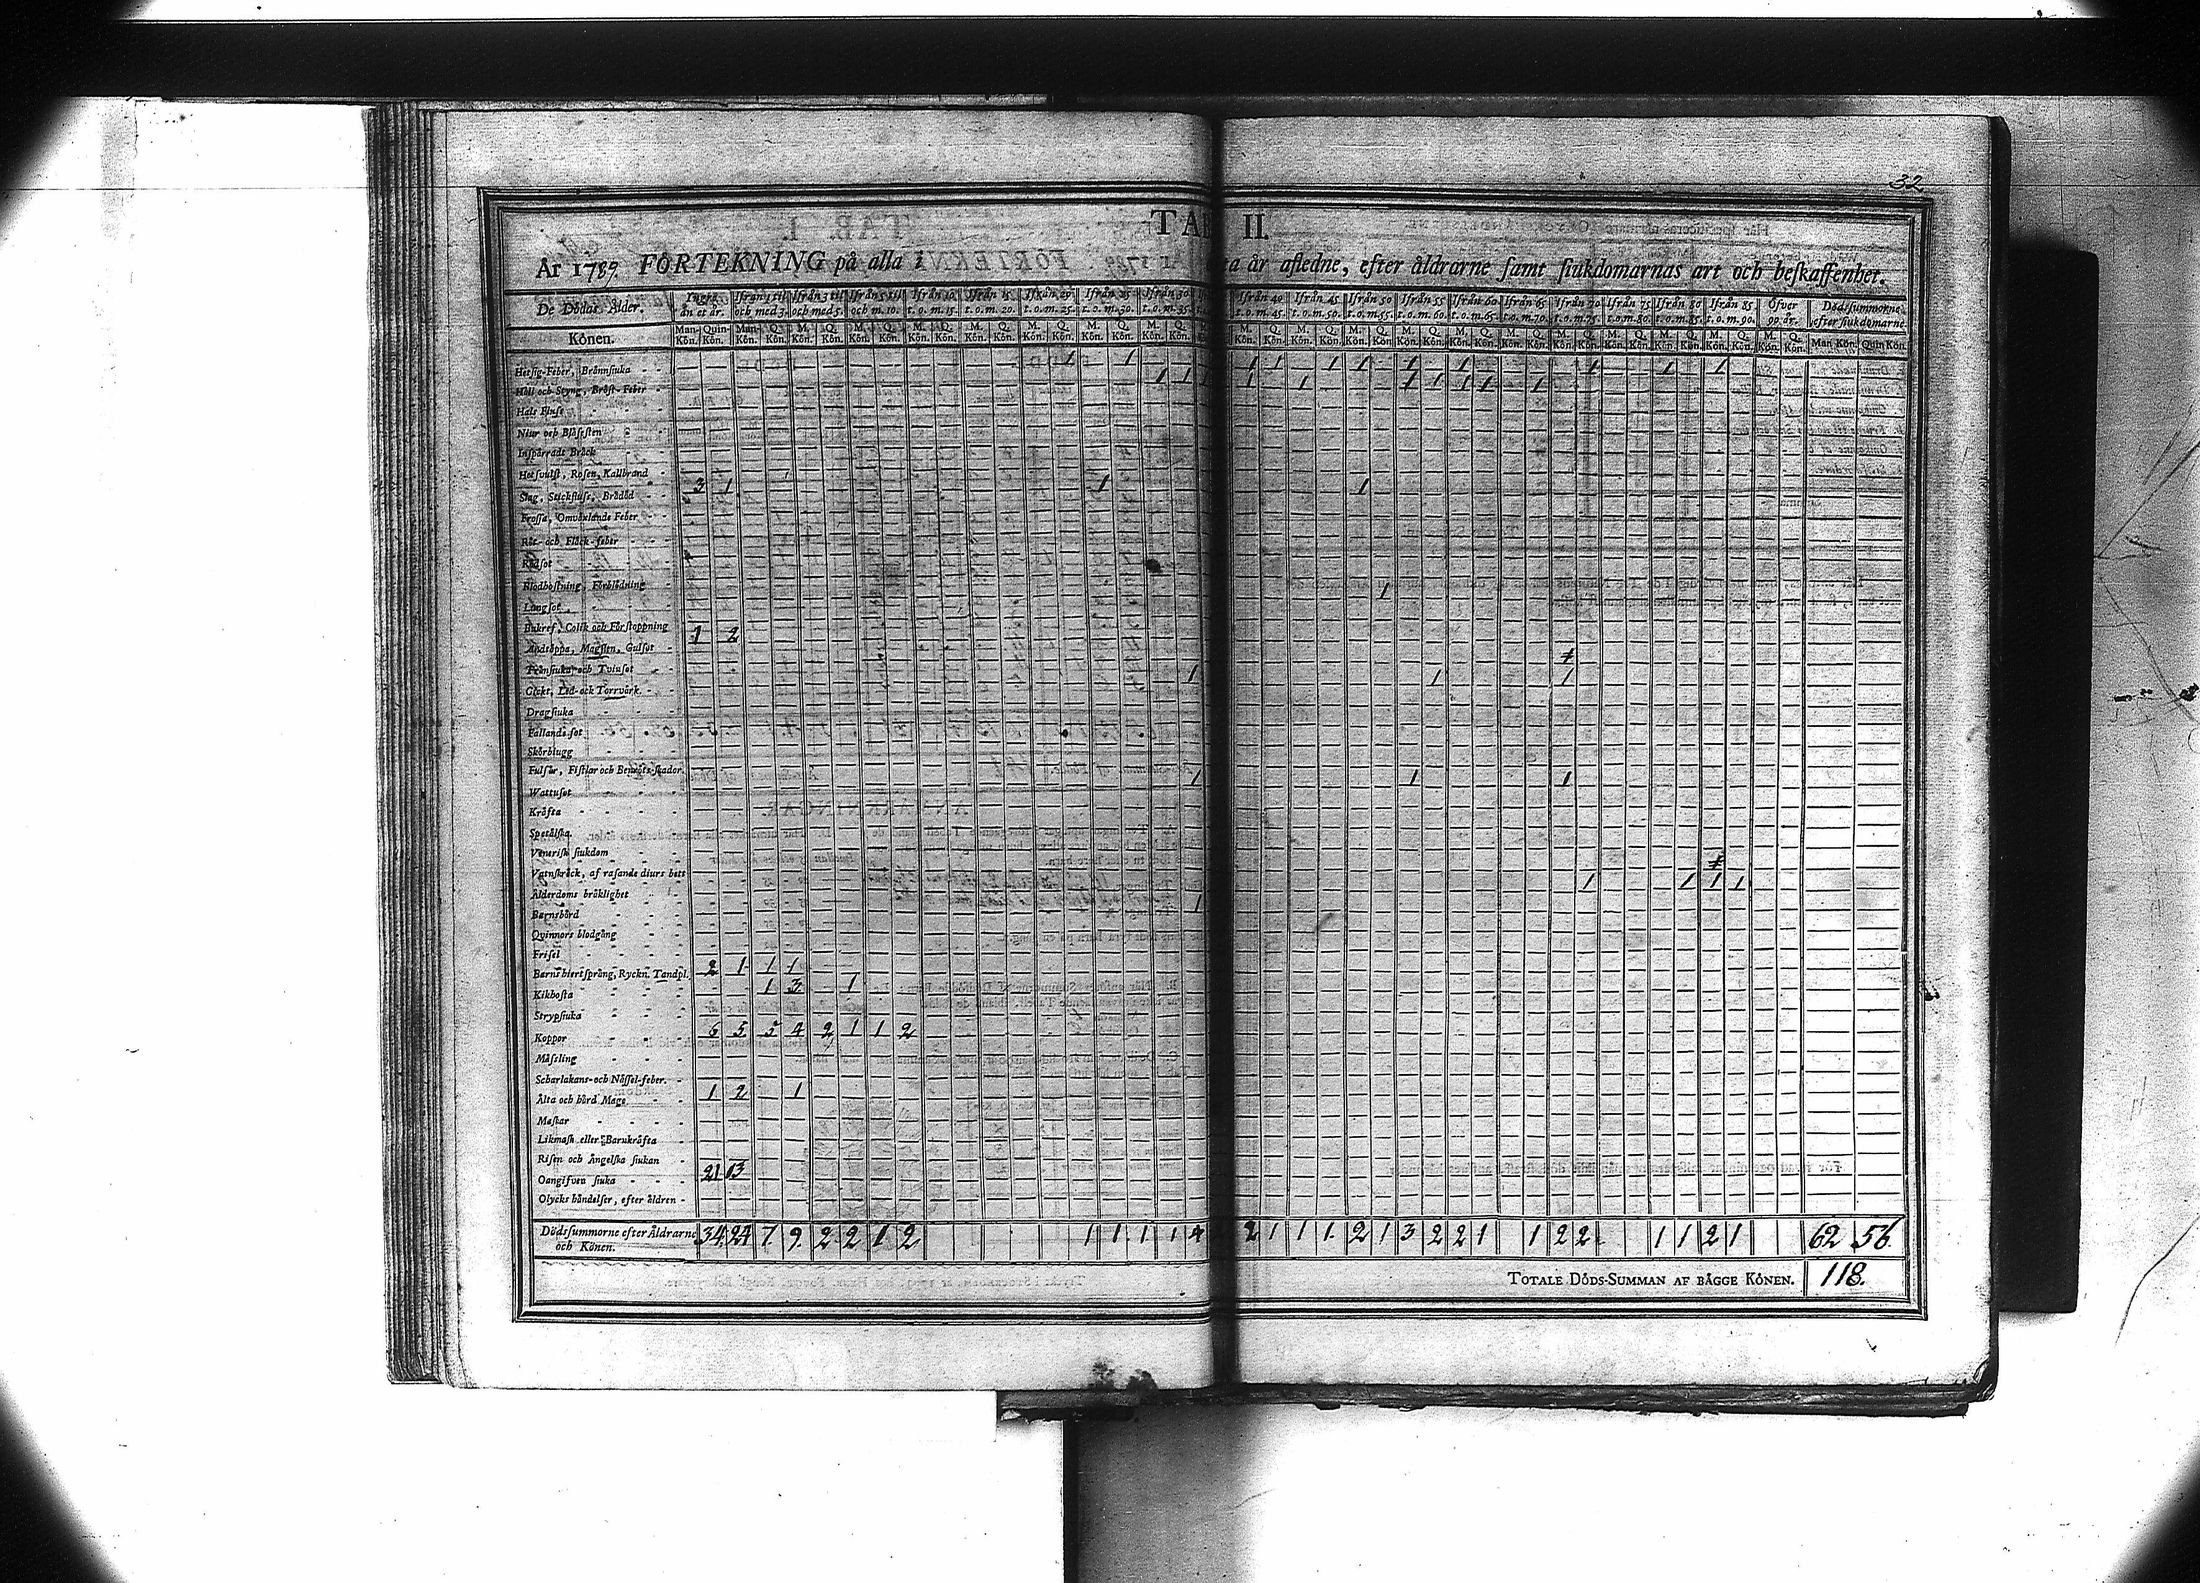 32
TAB. II.
År 1789. FÖRTEKNING på alla i detta år afledne, efter åldrarne samt siukdomarnas art och beskaffenhet.
De Dödas Ålder. Yngre än et år. Ifrån 1 til och med 3. Ifrån 3 til och med 5. Ifrån 5 til och m. 10. Ifrån 10 t.o.m. 15. Ifrån 15 t.o.m. 20. Ifrån 20 t.o.m. 25. Ifrån 25 t.o.m. 30. Ifrån 30 t.o.m. 35. Ifrån 40 t.o.m. 45. Ifrån 45 t.o.m. 50. Ifrån 50 t.o.m. 55. Ifrån 55 t.o.m. 60. Ifrån 60 t.o.m. 65. Ifrån 65 t.o.m. 70. Ifrån 70 t.o.m. 75. Ifrån 75 t.o.m. 80. Ifrån 80 t.o.m. 85. Ifrån 85 t.o.m. 90. Öfver 90 år. Dödssummorne efter siukdomarne
Könen. Man-Kön. Quin-Kön. Man-Kön. Q. Kön. M. Kön. Q. Kön. Man Kön. Quin Kön.
Hetsig-Feber, Brännsiuka 1 1 1 1 1 1 1 1 1 1 1
Håll och Styng, Bröst-Feber 1 1 1 1 1 1 1 1 1
Hals Fluss
Niur och Blåssten
Inspärradt Bräck
Hetsvulst, Rosen, Kallbrand
Slag, Stickfluss, Brådöd 3 1 1 1
Frossa, Omväxlande Feber
Röt- och Fläck-feber
Rödsot
Blodhostning, Förblödning
Lungsot 1
Bukref, Colik och Förstoppning
Andtäppa, Magsten, Gulsot 1 2
Trånsiuka och Tvinsot
Gickt, Led- och Torrvärk 1 1 1
Dragsiuka
Fallandesot
Skörbiugg
Fulsår, Fistlar och Benröts-skador
Wattusot 1 1 1
Kräfta
Spetälska
Venerisk siukdom
Vatnskräck, af rasande diurs bett
Ålderdoms bräklighet 1 1 1 1
Barnsbörd 1
Qvinnors blodgång
Frisel
Barns hiertsprång, Ryckn. Tandpl. 2 1 1 1
Kikhosta 1 3 1
Strypsiuka
Koppor 6 5 5 4 2 1 1 2
Mässling
Scharlakans- och Nässel-feber.
Älta och hård Mage 1 2 1
Maskar
Likmask eller Barnkräfta
Risen och Ängelska siukan
Oangifven siuka 21 13
Olycks händelser, efter åldren
Dödssummorne efter Åldrarne och Könen. 34. 24 7. 9. 2. 2 1 2 1 1 1 1 4 2 1 1 1. 2 1 3 2 2 1 1 2 2 1 1 2 1 62 56.
TOTALE DÖDS-SUMMAN AF BÅGGE KÖNEN. 118.